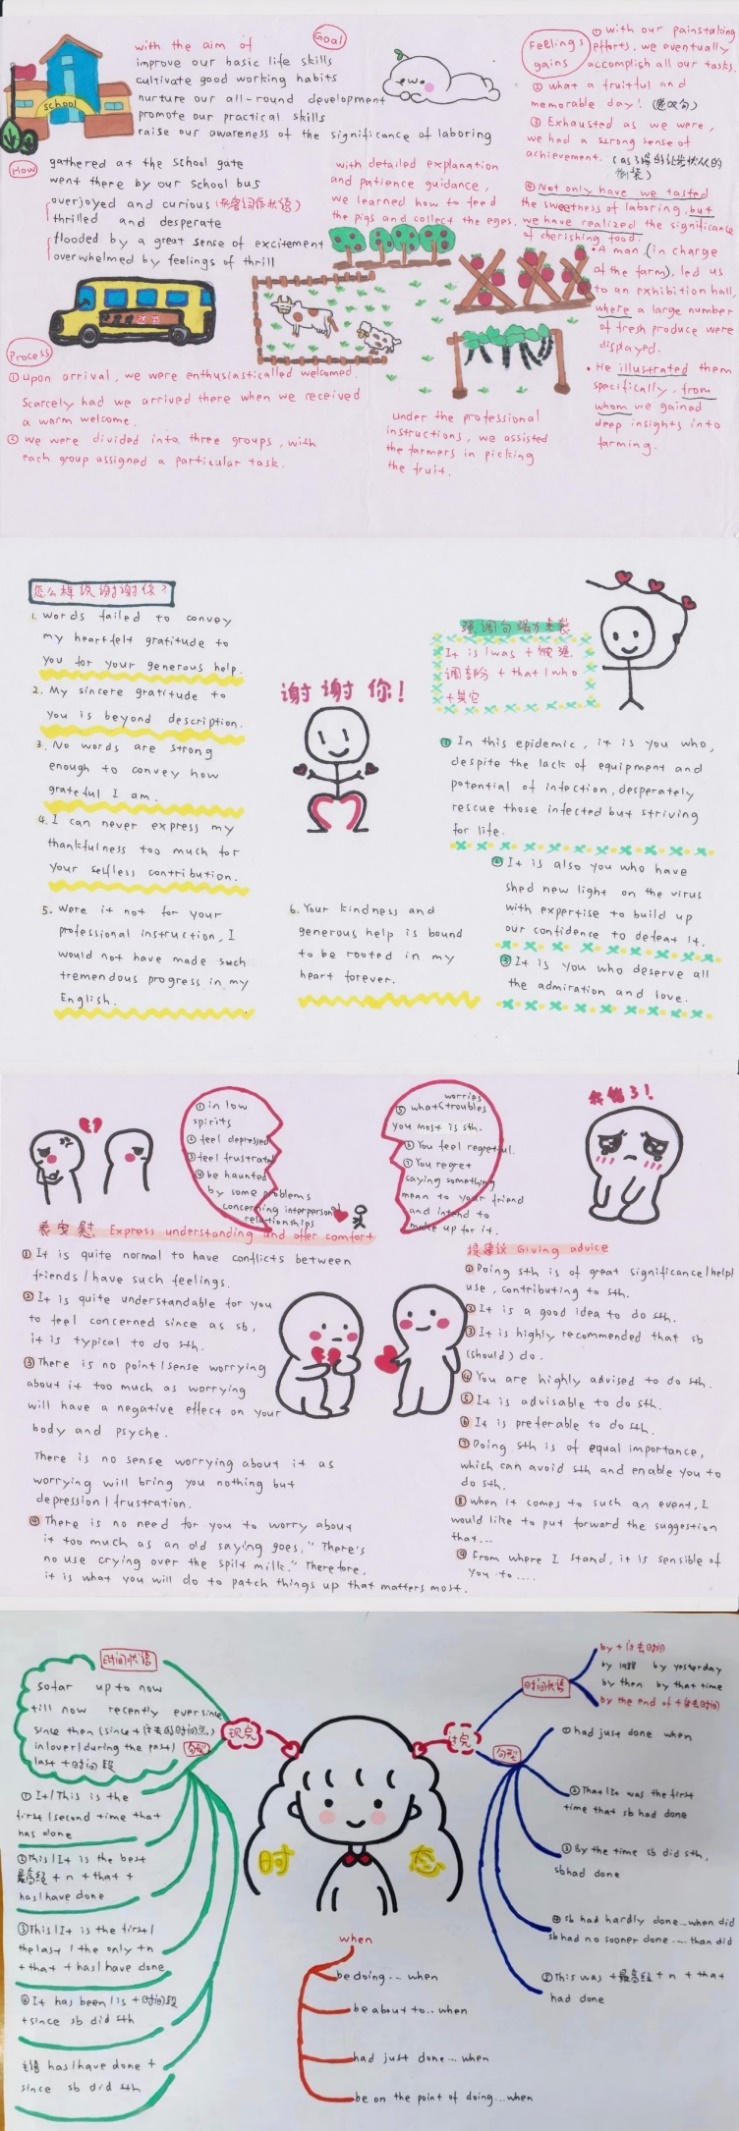 Goal
with the aim of
improve our basic life skills
cultivate good working habits
nurture our all-round development
promote our practical skills
raise our awareness of the significance of laboring
school
How
gathered at the school gate
went there by our school bus
overjoyed and curious (形容词作状语)
thrilled and desperate
flooded by a great sense of excitement
overwhelmed by feelings of thrill
with detailed explanation
and patience guidance,
we learned how to feed
the pigs and collect the eggs.
Process
① Upon arrival, we were enthusiasticalled welcomed.
Scarcely had we arrived there when we received
a warm welcome.
② we were divided into three groups, with
each group assigned a particular task.
under the professional
instructions, we assisted
the farmers in picking
the fruit.
Feelings
gains
① with our painstaking
efforts, we eventually
accomplish all our tasks.
② what a fruitful and
memorable day! (感叹句)
③ Exhausted as we were,
we had a strong sense of
achievement.
④ Not only have we tasted
the sweetness of laboring, but
we have realized the significance
of cherishing food.
• A man (in charge
of the farm), led us
to an exhibition hall,
where a large number
of fresh produce were
displayed.
• He illustrated them
specifically, from
whom we gained
deep insights into
farming.
怎么样说谢谢你?
1. Words failed to convey
my heartfelt gratitude to
you for your generous help.
2. My sincere gratitude to
you is beyond description.
3. No words are strong
enough to convey how
grateful I am.
4. I can never express my
thankfulness too much for
your selfless contribution.
5. Were it not for your
professional instruction, I
would not have made such
tremendous progress in my
English.
谢谢你!
6. Your kindness and
generous help is bound
to be rooted in my
heart forever.
强调句强力来袭
It is/was + 被强
调部分 + that/who
+其它
① In this epidemic, it is you who,
despite the lack of equipment and
potential of infection, desperately
rescue those infected but striving
for life.
② It is also you who have
shed new light on the virus
with expertise to build up
our confidence to defeat it.
③ It is you who deserve all
the admiration and love.
① in low
spirits
② feel depressed
③ feel frustrated
④ be haunted
by some problems
concerning interpersonal
relationships
worries
⑤ what troubles
you most is sth.
⑥ You feel regretful.
⑦ You regret
saying something
mean to your friend
and intend to
make up for it.
我错了!
表安慰 Express understanding and offer comfort
① It is quite normal to have conflicts between
friends/have such feelings.
② It is quite understandable for you
to feel concerned since as sb,
it is typical to do sth.
③ There is no point/sense worrying
about it too much as worrying
will have a negative effect on your
body and psyche.
There is no sense worrying about it as
worrying will bring you nothing but
depression/frustration.
④ There is no need for you to worry about
it too much as an old saying goes, "There's
no use crying over the spilt milk." Therefore,
it is what you will do to patch things up that matters most.
提建议 Giving advice
① Doing sth is of great significance/help/
use, contributing to sth.
② It is a good idea to do sth.
③ It is highly recommended that sb
(should) do.
④ You are highly advised to do sth.
⑤ It is advisable to do sth.
⑥ It is preferable to do sth.
⑦ Doing sth is of equal importance,
which can avoid sth and enable you to
do sth.
⑧ when it comes to such an event, I
would like to put forward the suggestion
that...
⑨ From where I stand, it is sensible of
you to....
时间状语
sofar up to now
till now recently ever since
since then (since +过去的时间点)
in/over/during the past/
last +时间段
现完
句型
① It/This is the
first/second time that
has done
② This/It is the best
最高级 + n + that +
has/have done
③ This/It is the first/
the last/the only +n
+ that + has/have done
④ It has been/is +时间段
+since sb did sth
主语 has/have done +
since sb did sth
时态
过完
时间状语
by +过去时间
by 1988 by yesterday
by then by that time
by the end of +过去时间
句型
① had just done when
② That/It was the first
time that sb had done
③ By the time sb did sth,
sb had done
④ sb had hardly done...when did
sb had no sooner done....than did
⑦ This was +最高级 + n + that
had done
when
be doing... when
be about to... when
had just done... when
be on the point of doing...when